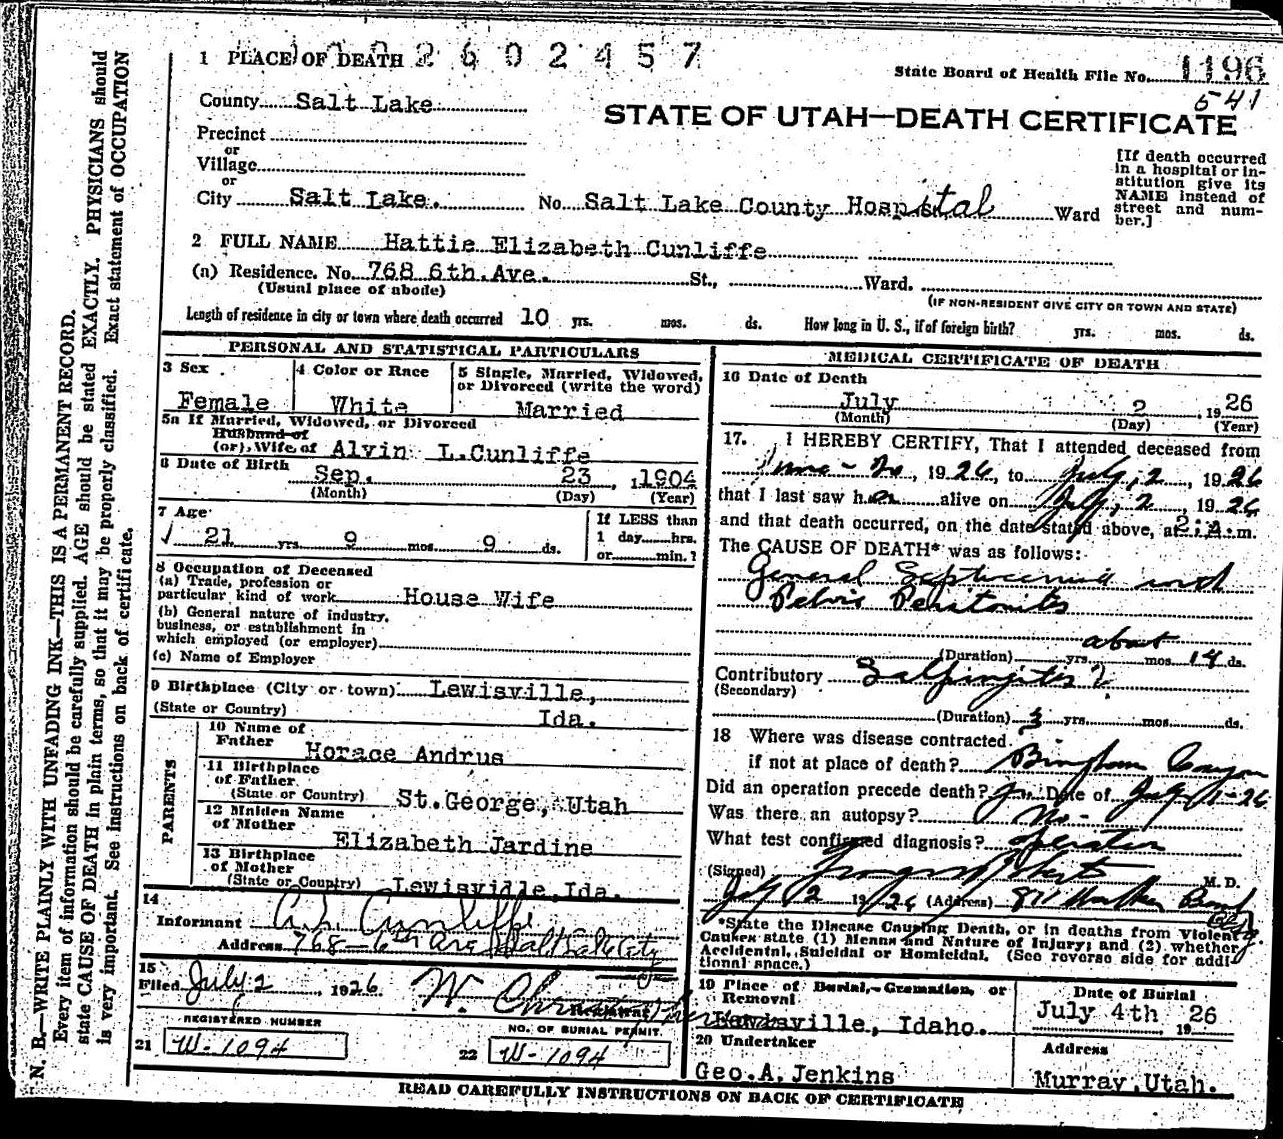 1 PLACE OF DEATH 2602457
State Board of Health File No. 1196
541
County Salt Lake
STATE OF UTAH—DEATH CERTIFICATE
Precinct
or
Village
or
City Salt Lake. No. Salt Lake County Hospital Ward
[If death occurred
in a hospital or in-
stitution give its
NAME instead of
street and num-
ber.]
2 FULL NAME Hattie Elizabeth Cunliffe
(a) Residence. No. 768 6th Ave. St., Ward.
(Usual place of abode)
(IF NON-RESIDENT GIVE CITY OR TOWN AND STATE)
Length of residence in city or town where death occurred 10 yrs. mos. ds. How long in U. S., if of foreign birth? yrs. mos. ds.
PERSONAL AND STATISTICAL PARTICULARS
3 Sex
Female
4 Color or Race
White
5 Single, Married, Widowed,
or Divorced (write the word)
Married
5a If Married, Widowed, or Divorced
Husband of
(or) Wife of Alvin L. Cunliffe
6 Date of Birth Sep. 23, 1904
(Month) (Day) (Year)
7 Age
21 yrs. 9 mos. 9 ds.
If LESS than
1 day hrs.
or min.?
8 Occupation of Deceased
(a) Trade, profession or
particular kind of work House Wife
(b) General nature of industry,
business, or establishment in
which employed (or employer)
(c) Name of Employer
9 Birthplace (City or town) Lewisville,
(State or Country) Ida.
PARENTS
10 Name of
Father Horace Andrus
11 Birthplace
of Father
(State or Country) St. George, Utah
12 Maiden Name
of Mother
Elizabeth Jardine
13 Birthplace
of Mother
(State or Country) Lewisville Ida.
14
Informant A. L. Cunliffe
Address 768 - 6th Ave Salt Lake City
15
Filed July 2, 1926
REGISTERED NUMBER
21 W-1094
NO. OF BURIAL PERMIT.
22 W-1094
MEDICAL CERTIFICATE OF DEATH
16 Date of Death
July 2, 1926
(Month) (Day) (Year)
17. I HEREBY CERTIFY, That I attended deceased from
June 1926, to July, 2, 1926
that I last saw her alive on July, 2, 1926
and that death occurred, on the date stated above, at 2: A. m.
The CAUSE OF DEATH* was as follows:
General Septicemia and
Pelvic Peritonitis
about
(Duration) yrs. mos. 14 ds.
Contributory Salpingitis
(Secondary)
(Duration) 3 yrs. mos. ds.
18 Where was disease contracted
if not at place of death? Bingham Canyon
Did an operation precede death? Date of July 1-26
Was there an autopsy? No-
What test confirmed diagnosis? Operation
(Signed) M. D.
July 2 1926 (Address) Walker
*State the Disease Causing Death, or in deaths from Violent
Causes state (1) Means and Nature of Injury; and (2) whether
Accidental, Suicidal or Homicidal. (See reverse side for addi-
tional space.)
19 Place of Burial, Cremation, or
Removal
Lewisville, Idaho.
Date of Burial
July 4th 1926
20 Undertaker
Geo. A. Jenkins
Address
Murray, Utah.
READ CAREFULLY INSTRUCTIONS ON BACK OF CERTIFICATE
N. B.—WRITE PLAINLY WITH UNFADING INK—THIS IS A PERMANENT RECORD.
Every item of information should be carefully supplied. AGE should be stated EXACTLY. PHYSICIANS should
state CAUSE OF DEATH in plain terms, so that it may be properly classified. Exact statement of OCCUPATION
is very important. See instructions on back of certificate.